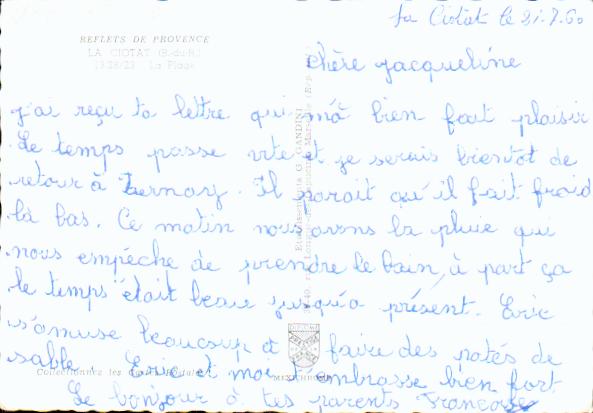 la Ciotat le 21.7.60
REFLETS DE PROVENCE
LA CIOTAT (B.-du-R.)
1328/23 La Plage
Chère Jacqueline
j'ai reçu ta lettre qui m'a bien fait plaisir
Le temps passe vite et je serais bientot de
retour à Ternay. Il parait qu'il fait froid
là bas. Ce matin nous avons la pluie qui
nous empêche de prendre le bain, à part ça
le temps était beau jusqu'à présent. Eric
s'amuse beaucoup à faire des patés de
sable. Eric et moi t'embrasse bien fort.
Le bonjour à tes parents Françoise
Collectionnez les
GANDINI
MEXICHROME